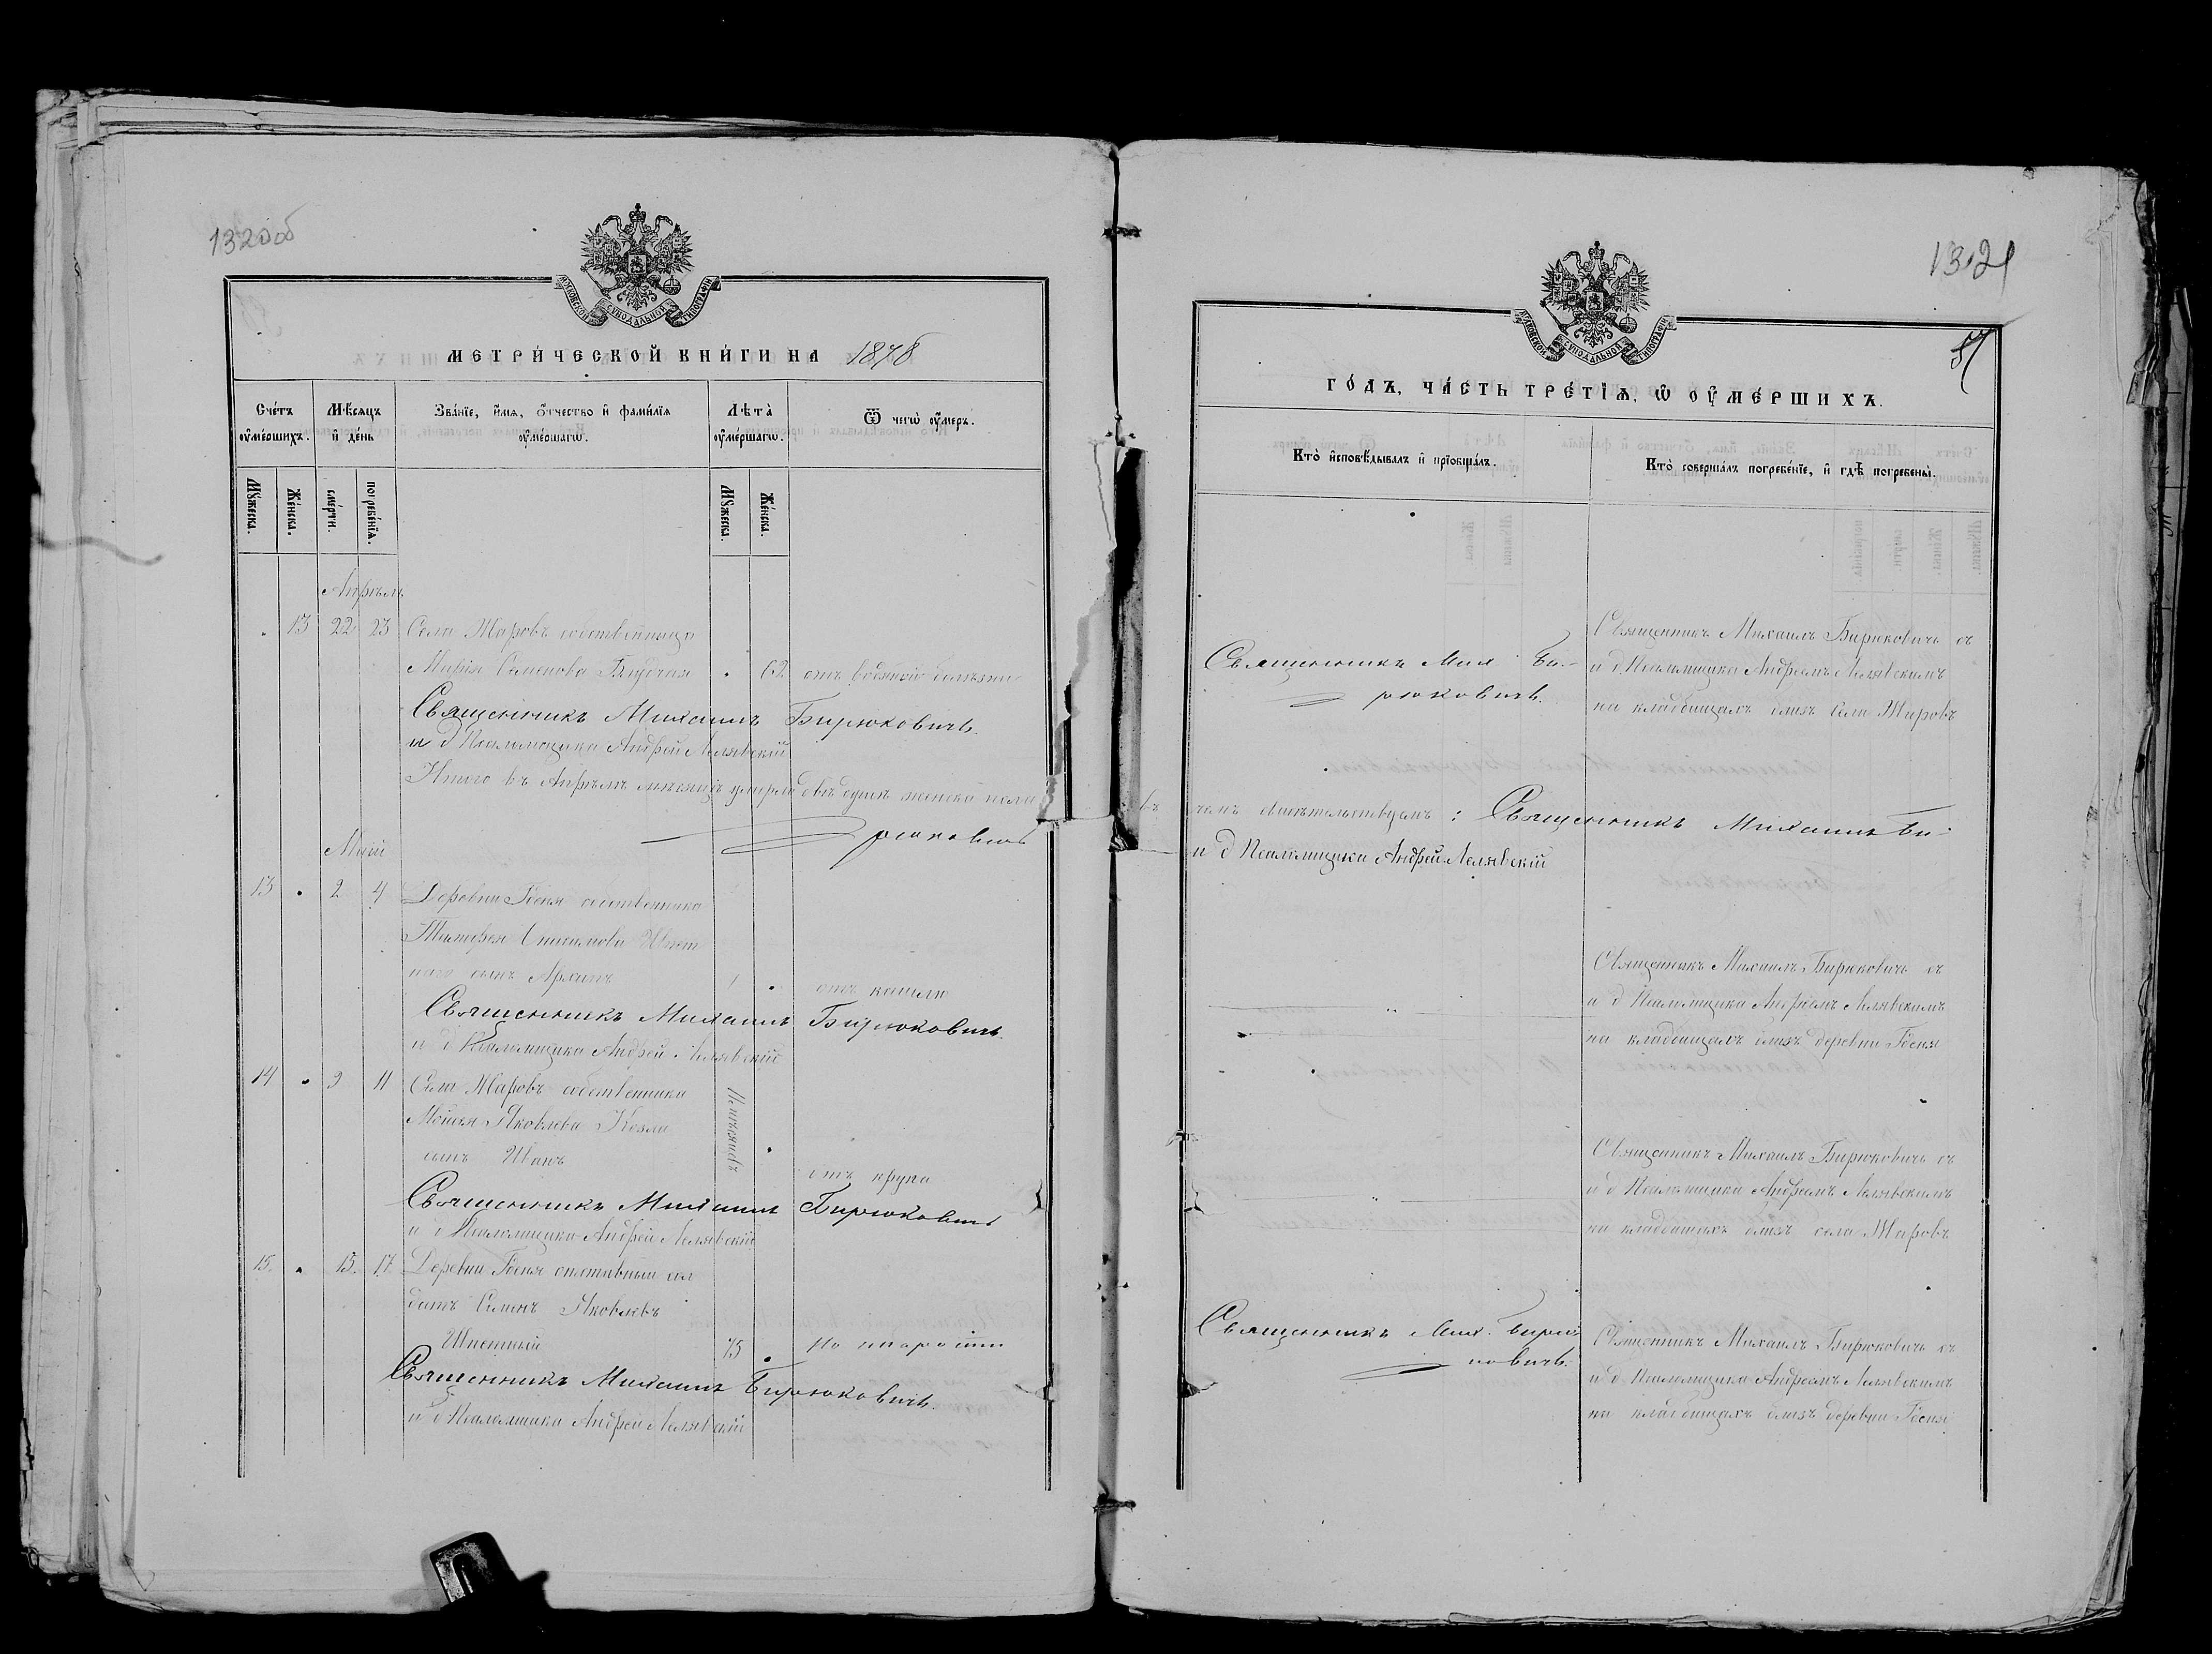 1320об
КОВСКОЙ СѴНОДАЛЬНОЙ ТИПОГРАФІИ
МЕТРИ́ЧЕСКОЙ КНИ́ГИ НА 1878
Сче́тъ ᲂу҆ме́ршихъ.
Мѣ́сяцъ и҆ де́нь
Зва́нїе, и҆́мѧ, ѻ҆́тчество и҆ фами́лїѧ ᲂу҆ме́ршагѡ.
Лѣ́та ᲂу҆ме́ршагѡ.
Ѿ чегѡ̀ ᲂу҆́меръ.
Мꙋ́жеска.
Же́нска.
сме́рти.
погребе́нїѧ.
Мꙋ́жеска.
Же́нска.
Апрѣль
13 22 23 Села Жаровъ собственница
Марія Семенова 62 отъ водяной болѣзни
Священникъ Михаилъ Бирюковичъ.
и д Псаломщика Андрей Лелявскій
Итого въ Апрѣлѣ мѣсяцѣ умерло двѣ души женска пола
рюковичъ
Май
13 2 4 Деревни Гденя собственника
сынъ Архипъ 1 отъ кашлю
Священникъ Михаилъ Бирюковичъ.
и д Псаломщика Андрей Лелявскій
14 9 11 Села Жаровъ собственника
Мойсея Яковлева
сынъ Иванъ отъ крупа
Священникъ Михаилъ Бирюковичъ
и д Псаломщика Андрей Лелявскій
15. 15. 17. Деревни Гденя отставный сол
датъ Яковлевъ
75 по старости
Священникъ Михаилъ Бирюковичъ.
и д Псаломщика Андрей Лелявскій
1321
57
КОВСКОЙ СѴНОДАЛЬНОЙ ТИПОГРАФІИ
ГО́ДЪ, ЧА́СТЬ ТРЕ́ТЇѦ, Ѡ ОУ҆МЕ́РШИХЪ.
Кто̀ и҆сповѣ́дывалъ и҆ прїѡбща́лъ.
Кто̀ соверша́лъ погребе́нїе, и҆ гдѣ̀ погребены̀.
Священникъ Мих Би-
рюковичъ.
Священникъ Михаилъ Бирюковичъ съ
и д Псаломщика Андреемъ Лелявскимъ
на кладбищахъ близъ села Жаровъ
въ чемъ свидѣтельствуемъ: Священникъ Михаилъ Би-
и д Псаломщика Андрей Лелявскій
Священникъ Михаилъ Бирюковичъ съ
и д Псаломщика Андреемъ Лелявскимъ
на кладбищахъ близъ деревни Гденя
Священникъ Михаилъ Бирюковичъ съ
и д Псаломщика Андреемъ Лелявскимъ
на кладбищахъ близъ села Жаровъ
Священникъ Мих. Бирю
ковичъ.
Священникъ Михаилъ Бирюковичъ съ
и д Псаломщика Андреемъ Лелявскимъ
на кладбищахъ близъ деревни Гденя